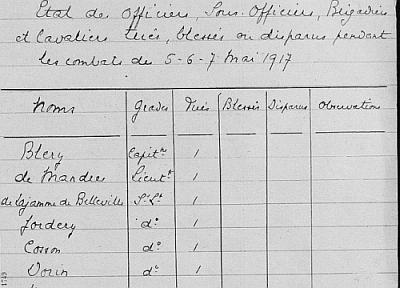 Etat des Officiers, Sous-Officiers, Brigadiers
et Cavaliers tués, blessés ou disparus pendant
les combats de 5-6-7 Mai 1917
Noms Grades Tués Blessés Disparus Observation
Blery Capit^ne 1
de Mandre Lieut^t 1
de Lajamme de Belleville S^s L^t 1
Jordery d° 1
Cosson d° 1
Vorin d° 1